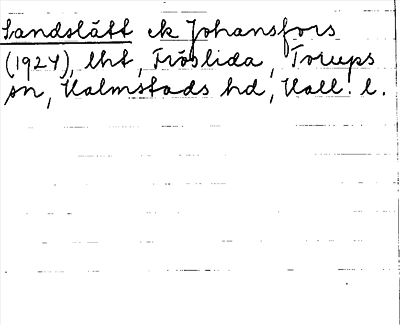 Sandslätt ek Johansfors
(1924), lht, Fröslida, Torups
sn, Halmstads hd, Hall. l.